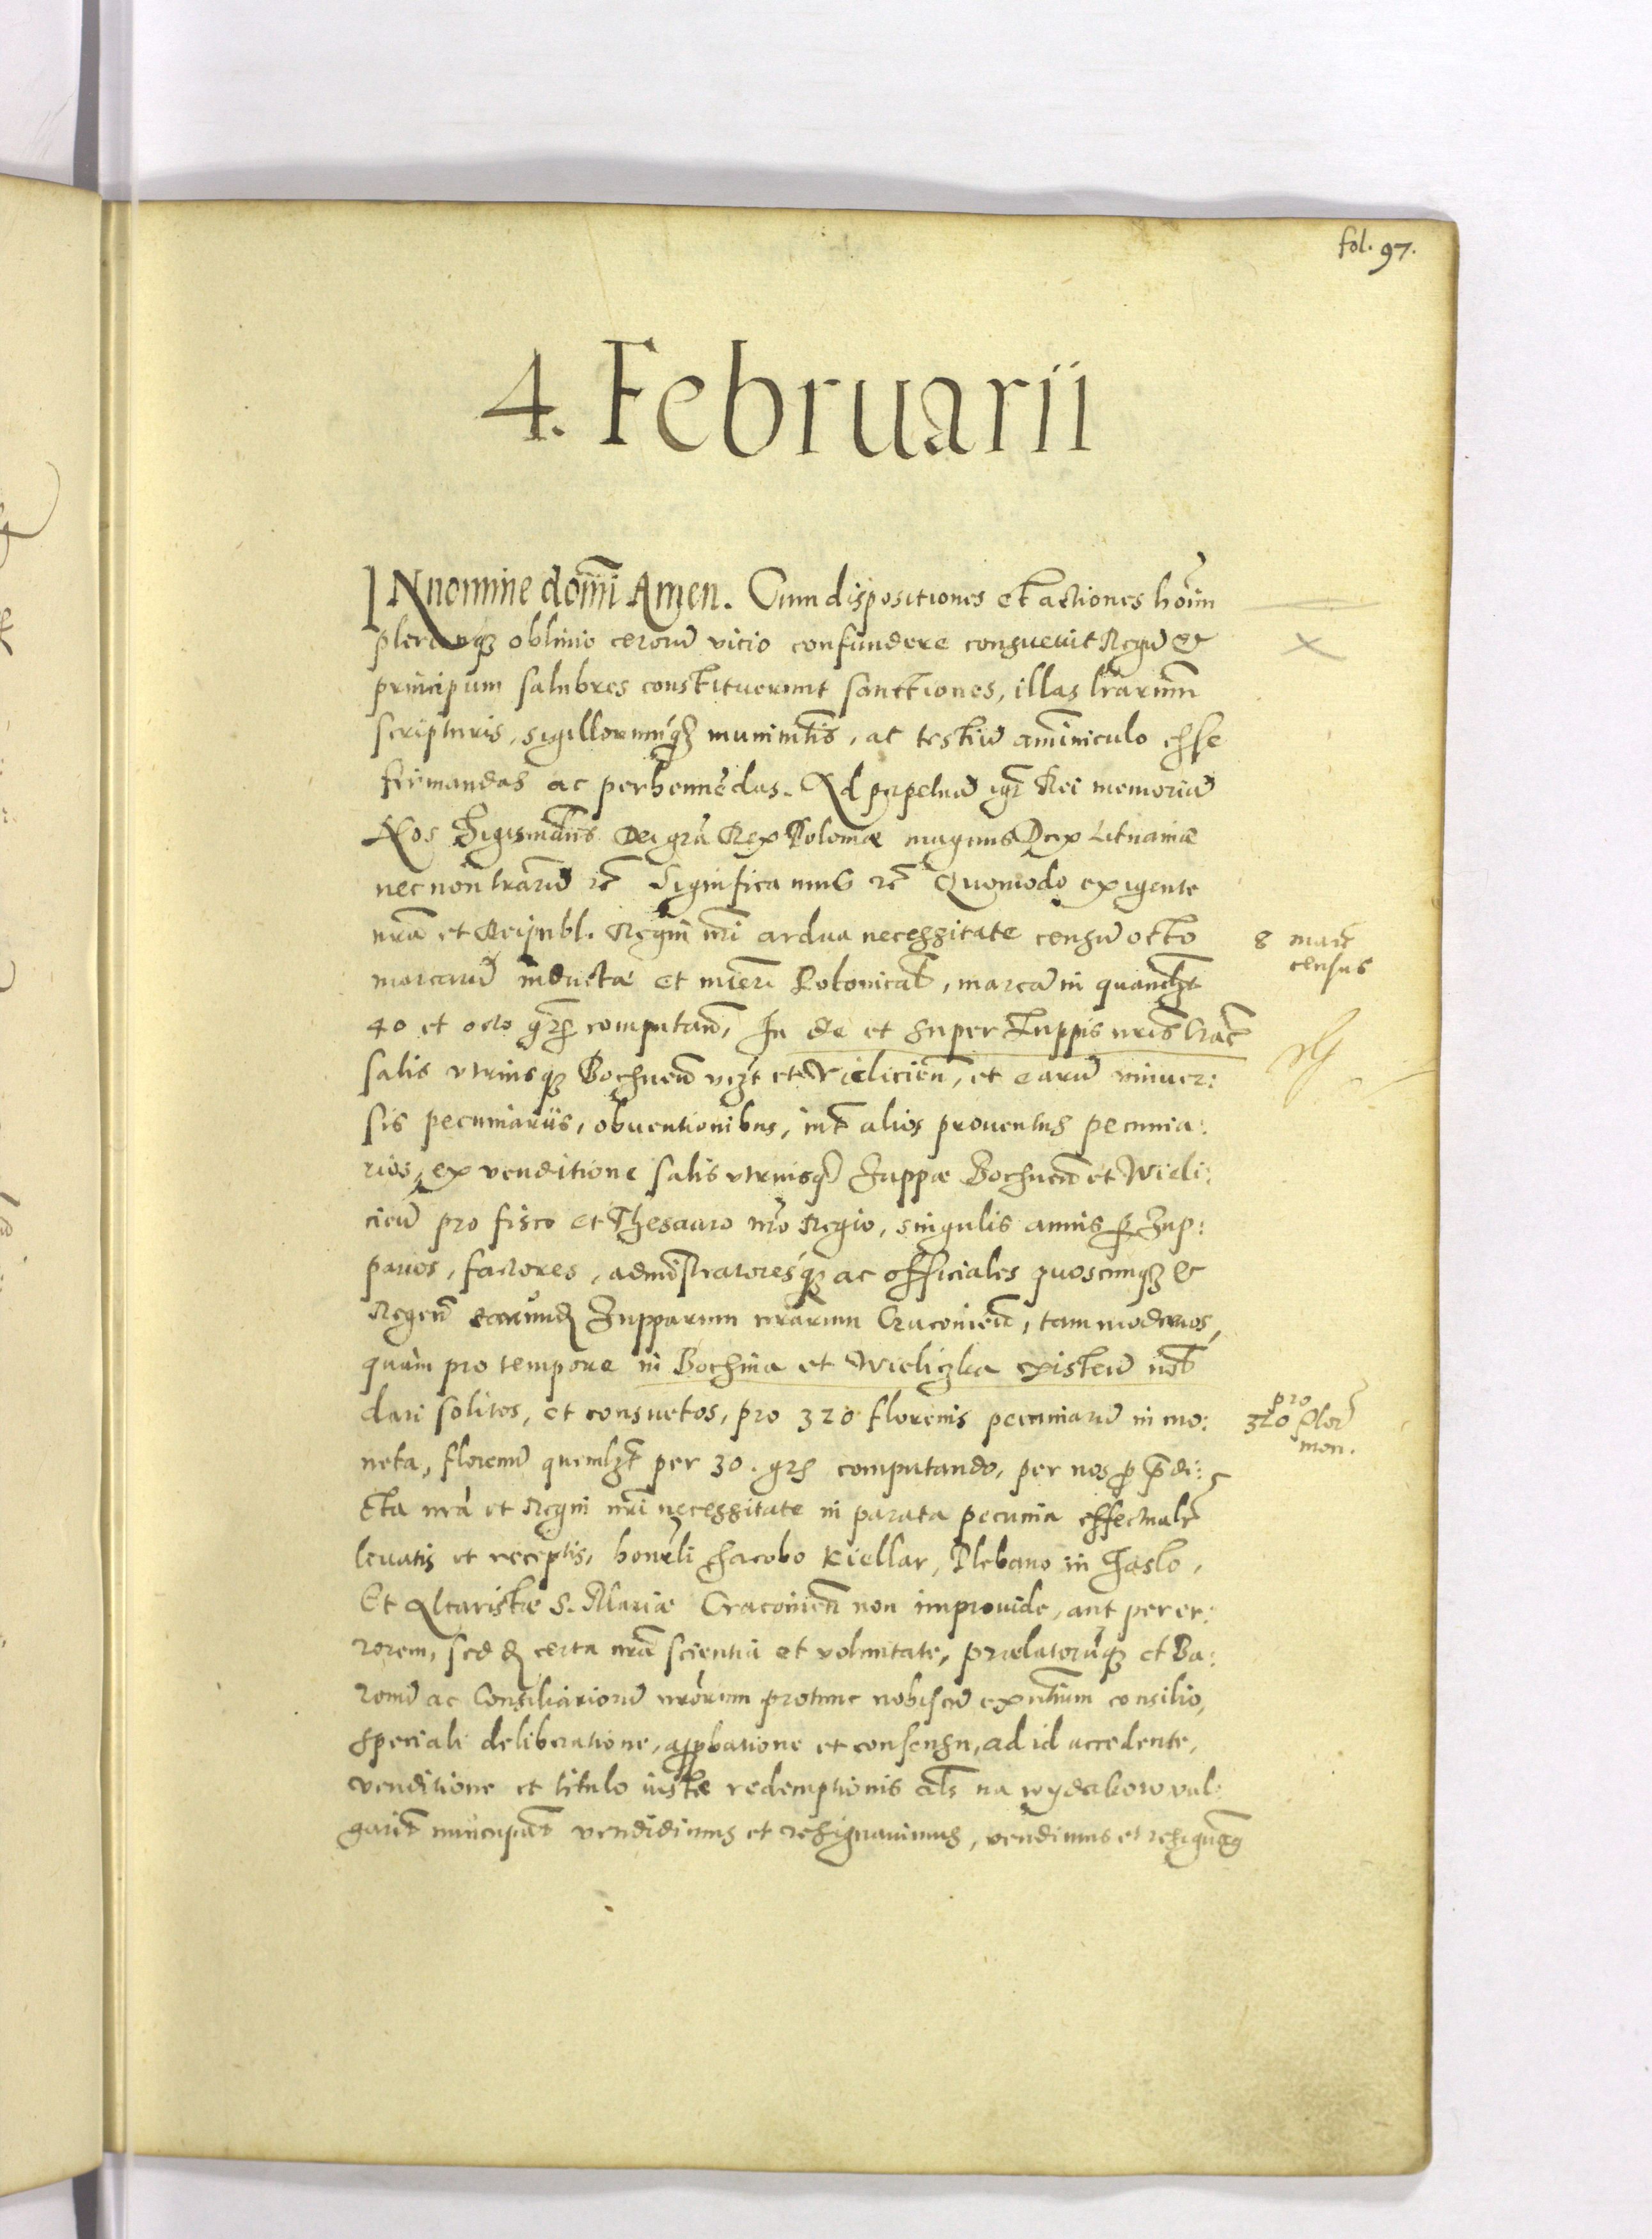 fol. 97.
4. Februarii
IN nomine domĩ Amen. Cum dispositiones et actiones hoĩm
plerunq₃ oblivio errorũ vicio confundere consuevit Regũ et
principum salubres constituerunt sanctiones, illas lrãrum
scripturis, sigillorumq₃ munimtis, ac testiũ aminiculo esse
firmandas ac perhennẽdas. Ad perpetuã igr̃ Rei memoriã
Nos Sigismdus Dei grã Rex Poloniæ magnus Dux Litnaniæ
nec non trãrũ rc̃ Significamus rc̃ Quomodo exigente
nrã et Reipubl. Regni nrĩ ardua necessitate censũ octo
marcarũ in pecunia et numeri Polonicał, marcã in quamlzt
40 et octo grs̃ computañ, In de et super Zuppis nrĩs Crac̃
salis utriusq₃ Bochneñ vizt et Vielicień, et earũ univer:
sis pecuniariis, obventionibus, int̃ alios proventus pecunia:
rios, ex venditione salis utriusq₃ Zuppæ Bochneñ et Wieli:
cieñ pro fisco et Thesauro nrõ Regio, singulis annis p Zup:
parios, factores, administratoresq₃ ac officiales quoscunq₃ et
Regeñ earund Zupparum nrãrum Cracovieñ, tam modernos,
quàm pro tempore in Bochnia et Wieliczka existeñ nob̃
dari solitos, et consuetos, pro 320 florenis pecuniarũ in mo:
neta, florenũ quemlzt per 30. grs̃ computando, per nos p p̃di:
cta nrã et Regni nrĩ necessitate in parata pecunia effectualr̃
levatis et receptis, honrãbli Jacobo Kiellar, Plebano in Jaslo,
Et Altaristæ S. Mariæ Cracovień non improvide, aut per er:
rorem, sed ex certa nrã scientia et voluntate, prælatorũq₃ et Ba:
ronũ ac Consiliariorũ nrõrum protunc nobiscũ exñtium consilio,
speciali deliberatione, approbatione et consensu, ad id accedente,
venditione et titulo iustæ redemptionis als̃ na wyderkow vul:
garit̃ nuncupat̃ vendidimus et resignavimus, vendimus et resignãg
8 marc̃
census
pro
320 flor̃
mon.